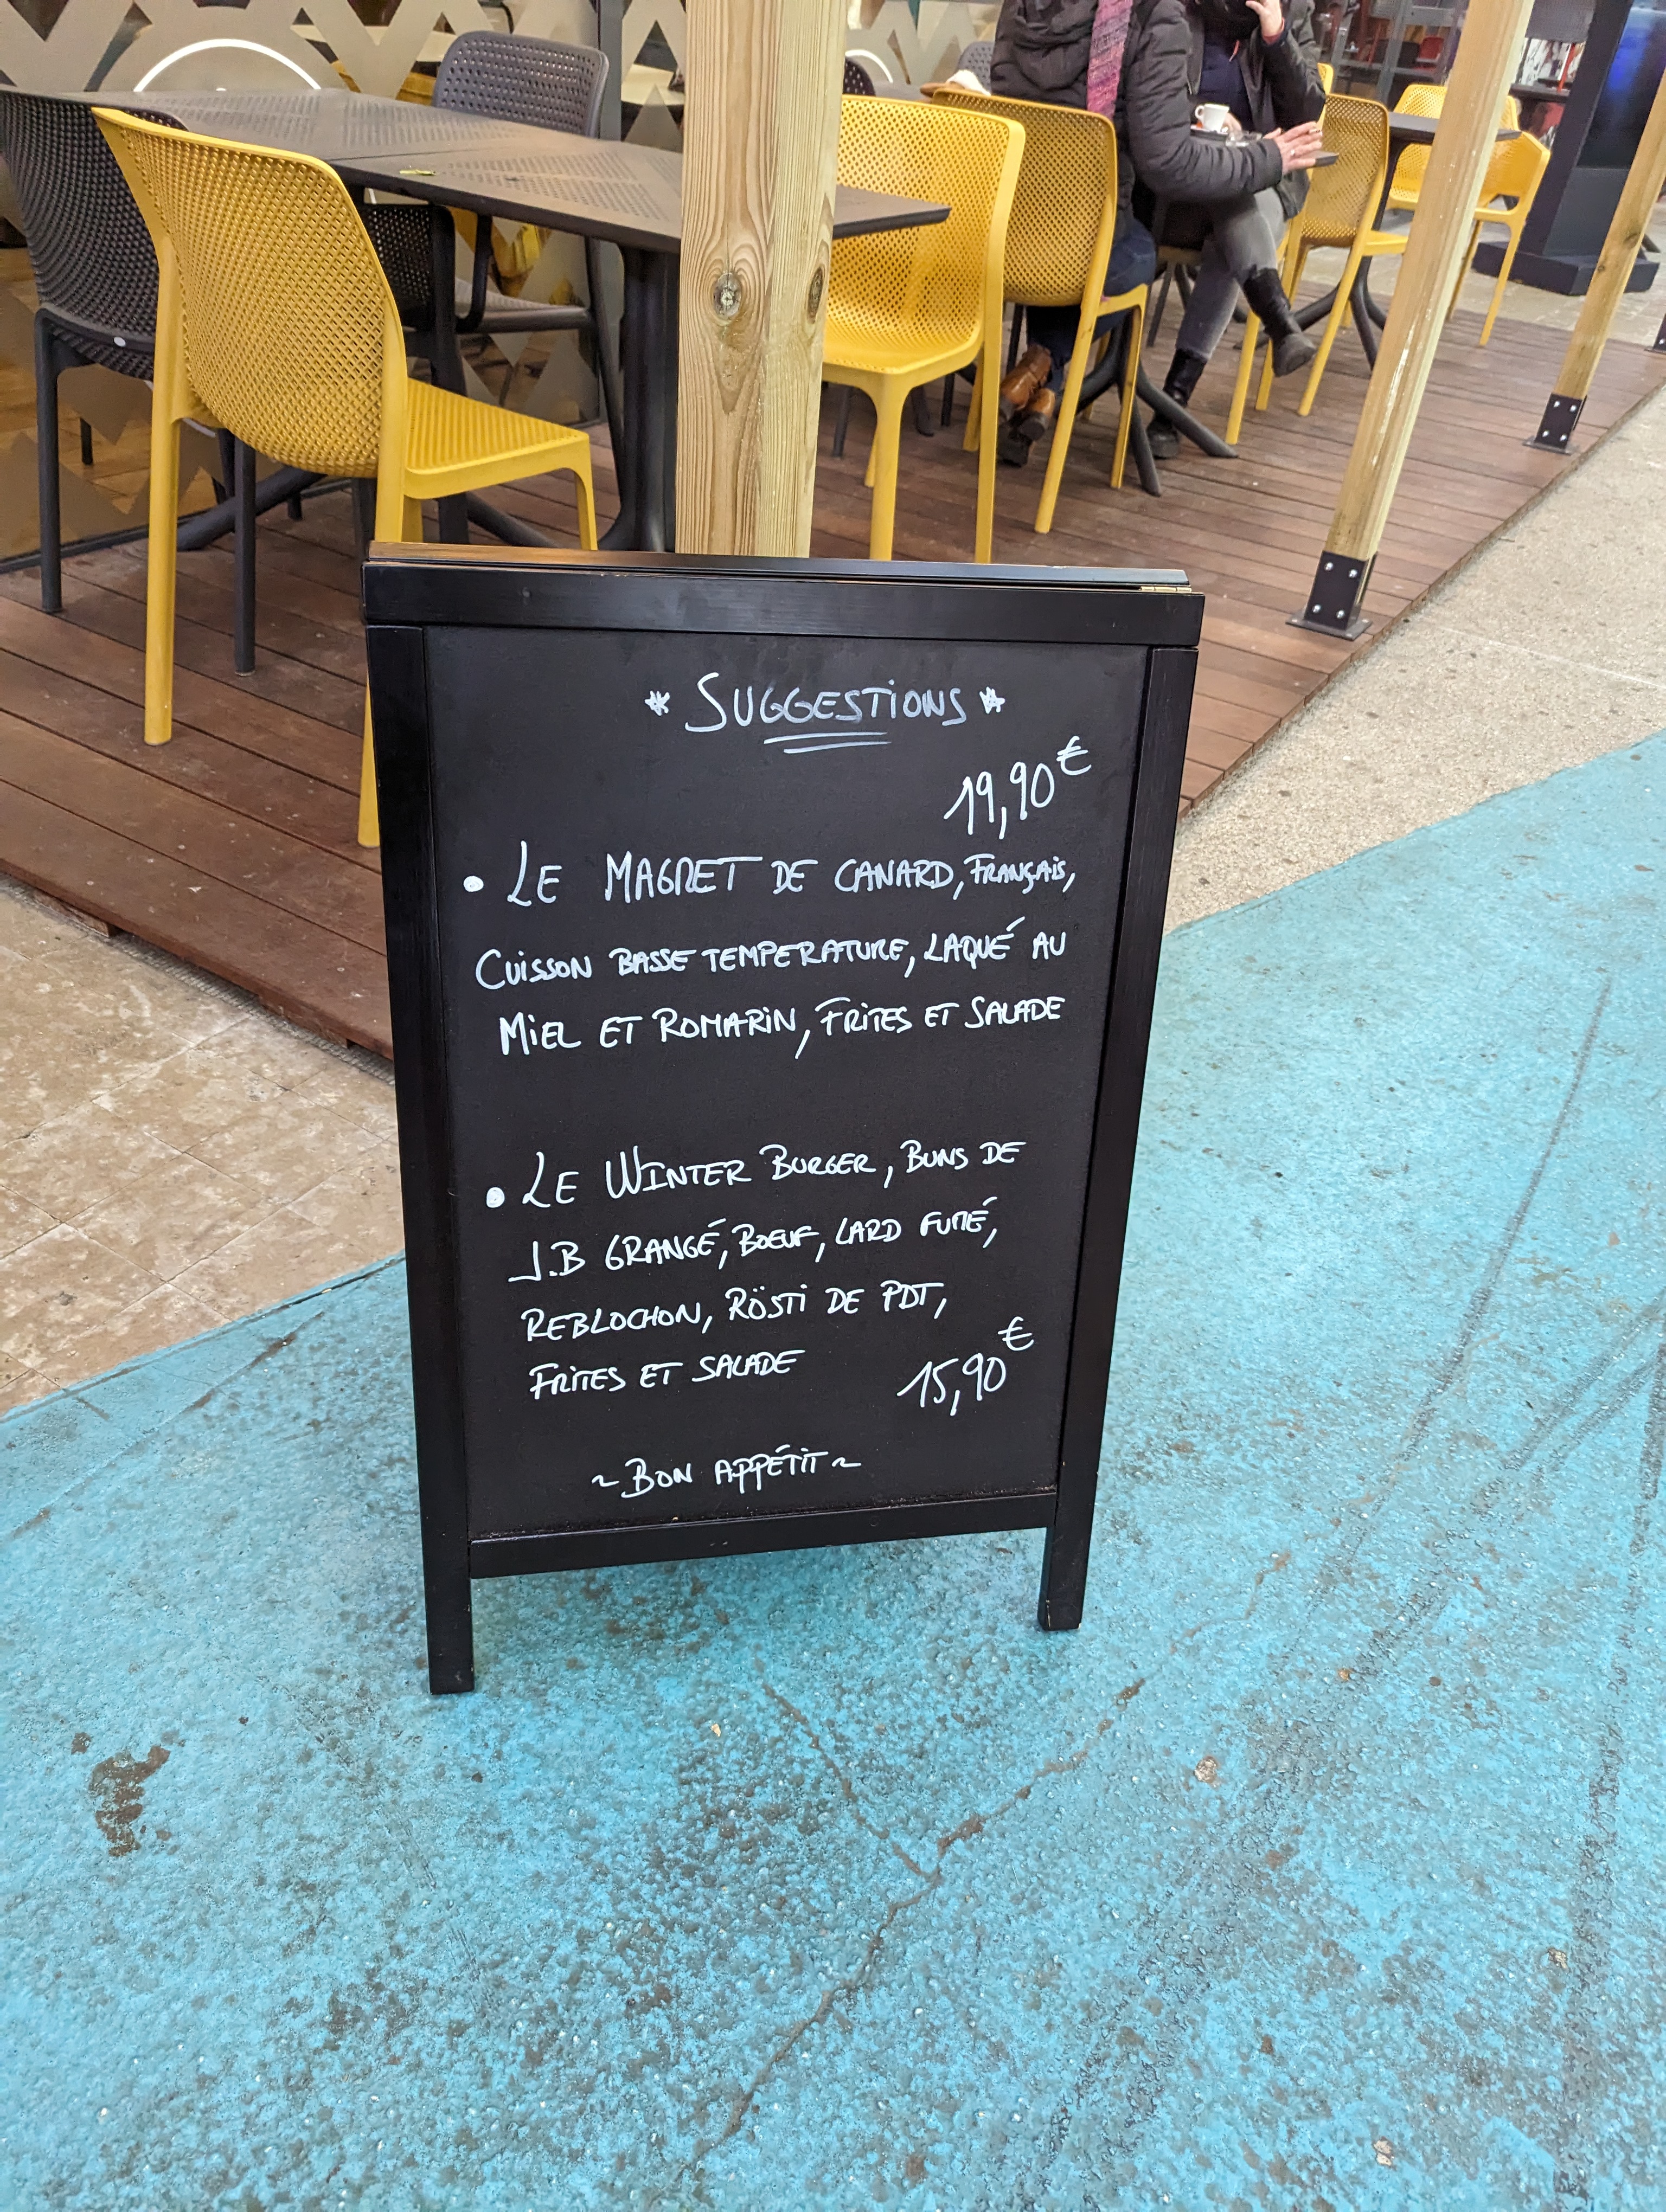 * SUGGESTIONS *
19,90€
• LE MAGRET DE CANARD, FRANÇAIS,
CUISSON BASSE TEMPERATURE, LAQUÉ AU
MIEL ET ROMARIN, FRITES ET SALADE
• LE WINTER BURGER, BUNS DE
J.B GRANGÉ, BOEUF, LARD FUMÉ,
REBLOCHON, RÖSTI DE PDT,
FRITES ET SALADE 15,90€
~ BON APPÉTIT ~